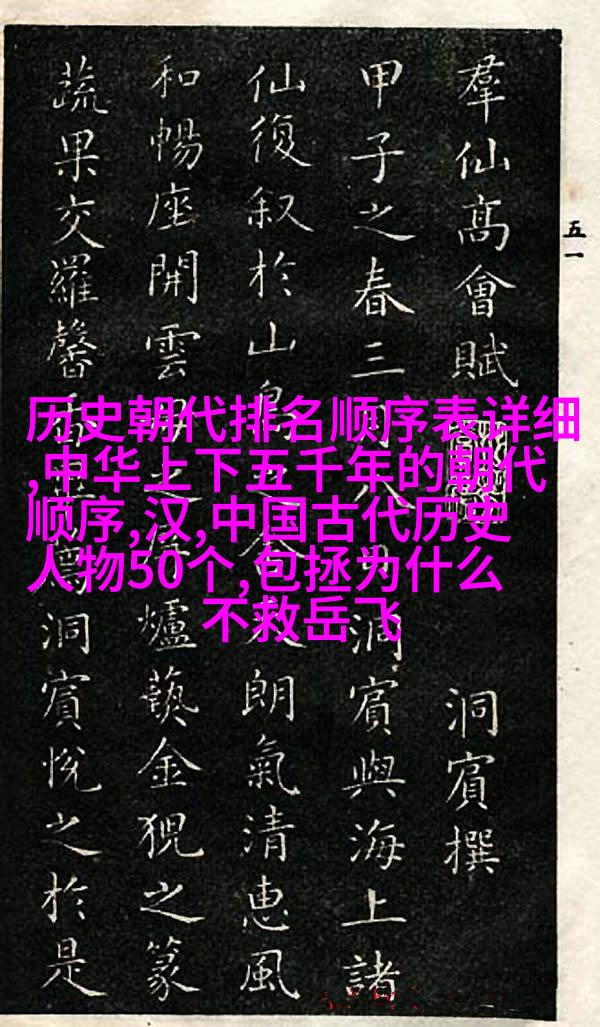 历史朝代排名顺序表详细
,中华上下五千年的朝代
顺序,汉,中国古代历史
人物50个,包拯为什么
不救岳飞
五一
羣仙高會賦 洞賓撰
甲子之春三 八 洞賓與海上諸
仙復叙於山島之 朗氣清惠風
和暢座開雲 之 爐爇金猊之篆
蔬果交羅馨 洞賓悅之於是